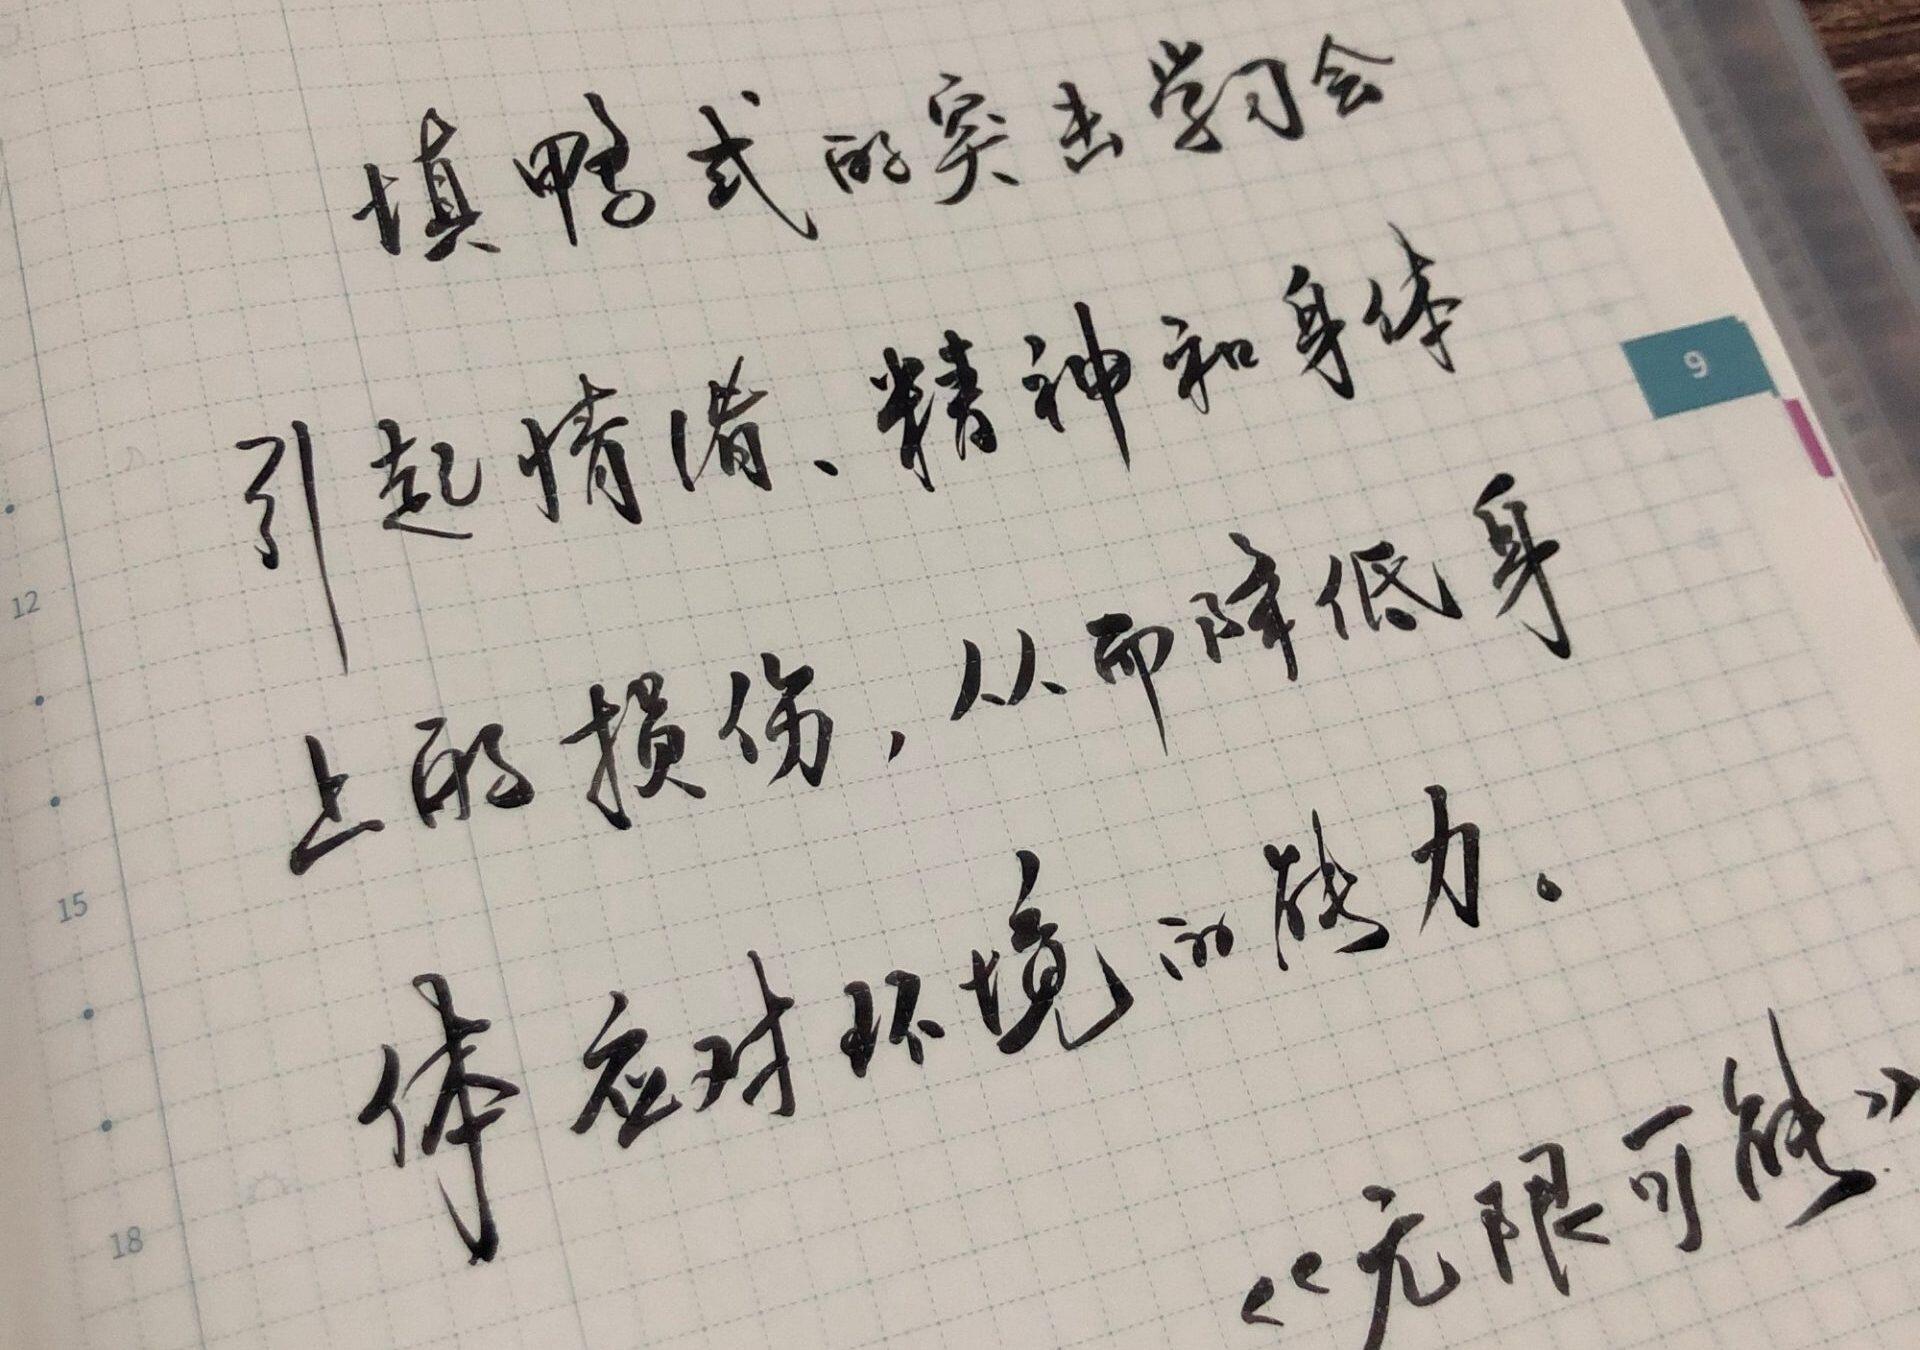 填鸭式的突击学习会
引起情绪、精神和身体
9
上的损伤,从而降低身
12
体应对环境的能力。
15
《无限可能》
18